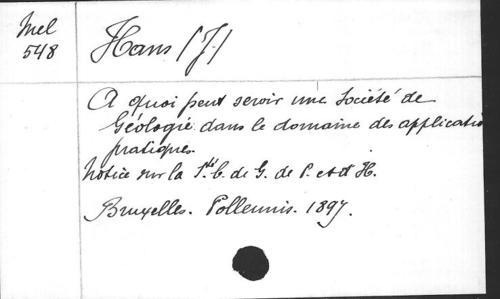 Mel
548
Hans (J.)
A quoi peut servir une Société de
Géologie dans le domaine des applicatio
pratiques.
Notice sur la Sté b. de G. de P. et d'H.
Bruxelles. Polleunis. 1897.